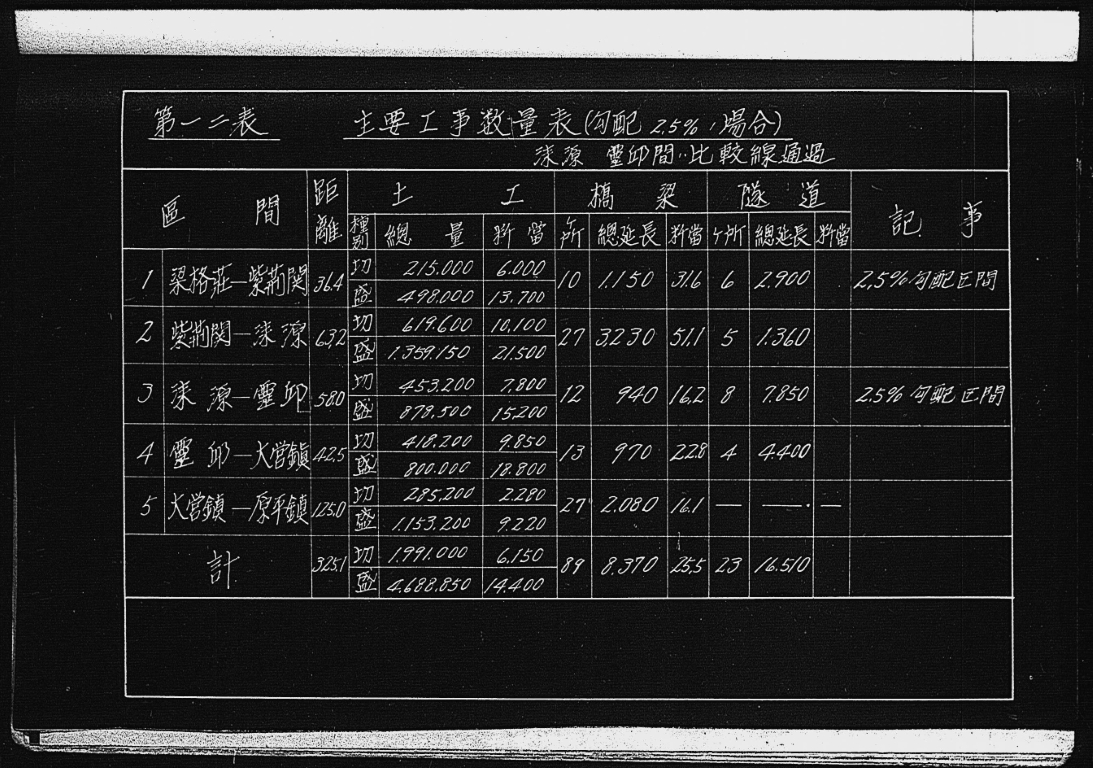 第一二表 主要工事数量表(勾配 2.5% ノ場合)
淶源 靈邱間ハ比較線通過
區間 距離 土工 橋梁 隧道 記事
種別 總量 粁當 ケ所 總延長 粁當 ケ所 總延長 粁當
1 梁格莊—紫荊関 36.4 切 215.000 6.000 10 1.150 31.6 6 2.900 2.5%勾配区間
盛 498.000 13.700
2 紫荊関—淶源 63.2 切 619.600 10,100 27 3.230 51.1 5 1.360
盛 1.359.150 21.500
3 淶源—靈邱 58.0 切 453.200 7,800 12 940 16.2 8 7.850 2.5%勾配区間
盛 878.500 15.200
4 靈邱—大営鎮 42.5 切 418.200 9.850 13 970 22.8 4 4.400
盛 800.000 18.800
5 大営鎮—原平鎮 125.0 切 285,200 2.280 27 2.080 16.1 — — —
盛 1.153.200 9.220
計 325.1 切 1.991.000 6,150 89 8.370 25.5 23 16.510
盛 4.688.850 14.400